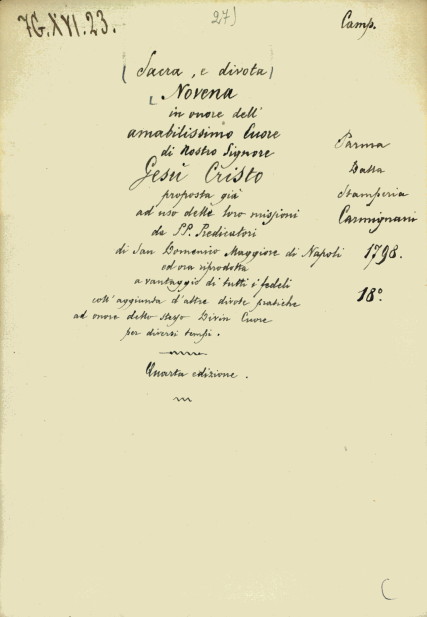 7G.XVI.23.
27)
Camp.
(Sacra, e divota)
Novena
in onore dell'
amabilissimo Cuore
di Nostro Signore
Gesù Cristo
proposta già
ad uso delle loro missioni
da PP. Predicatori
di San Domenico Maggiore di Napoli
ed ora riprodotta
a vantaggio di tutti i fedeli
coll' aggiunta d'altre divote pratiche
ad onore dello stesso Divin Cuore
per diversi tempi.
Quarta edizione.
Parma
Dalla
Stamperia
Carmignani
1798.
18°